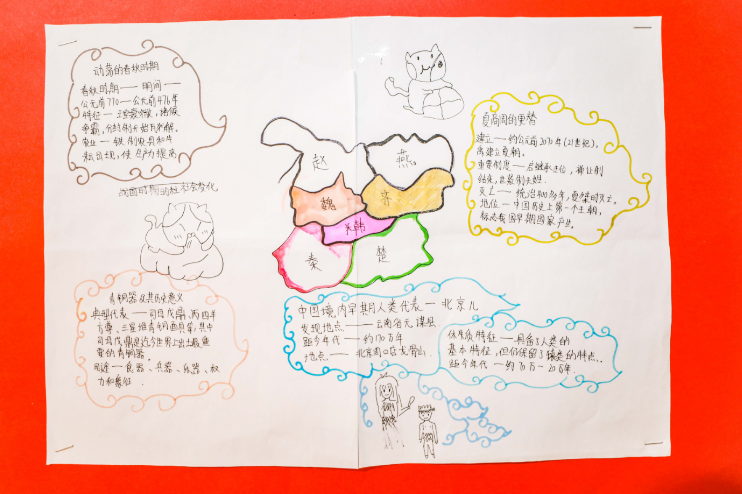 动荡的春秋时期
春秋时期——时间——
公元前770—公元前476年
特征——王室衰微,诸侯
争霸,分封制开始瓦解。
农业——铁制农具和牛
耕出现,使生产力提高
战国时期的社会变化
青铜器及其历史意义
典型代表——司母戊鼎,四羊
方尊、三星堆青铜面具等,其中
司母戊鼎是迄今世界上出土最重
要的青铜器。
用途——食器、兵器、乐器、权
力和象征
赵
燕
魏
齐
韩
秦
楚
夏商周的更替
建立——约公元前2070年(21世纪),
禹建立夏朝。
重要制度——启继承王位,禅让制
结束,世袭制开始。
灭亡——统治400多年,夏桀时灭亡。
地位——中国历史上第一个王朝,
标志我国早期国家产生。
中国境内早期人类代表—北京人
发现地点——云南省元谋县
距今年代——约170万年
地点——北京周口店龙骨山.
体质特征——具备了人类的
基本特征,但仍保留了猿类的特点.
距今年代—约70万—20万年.